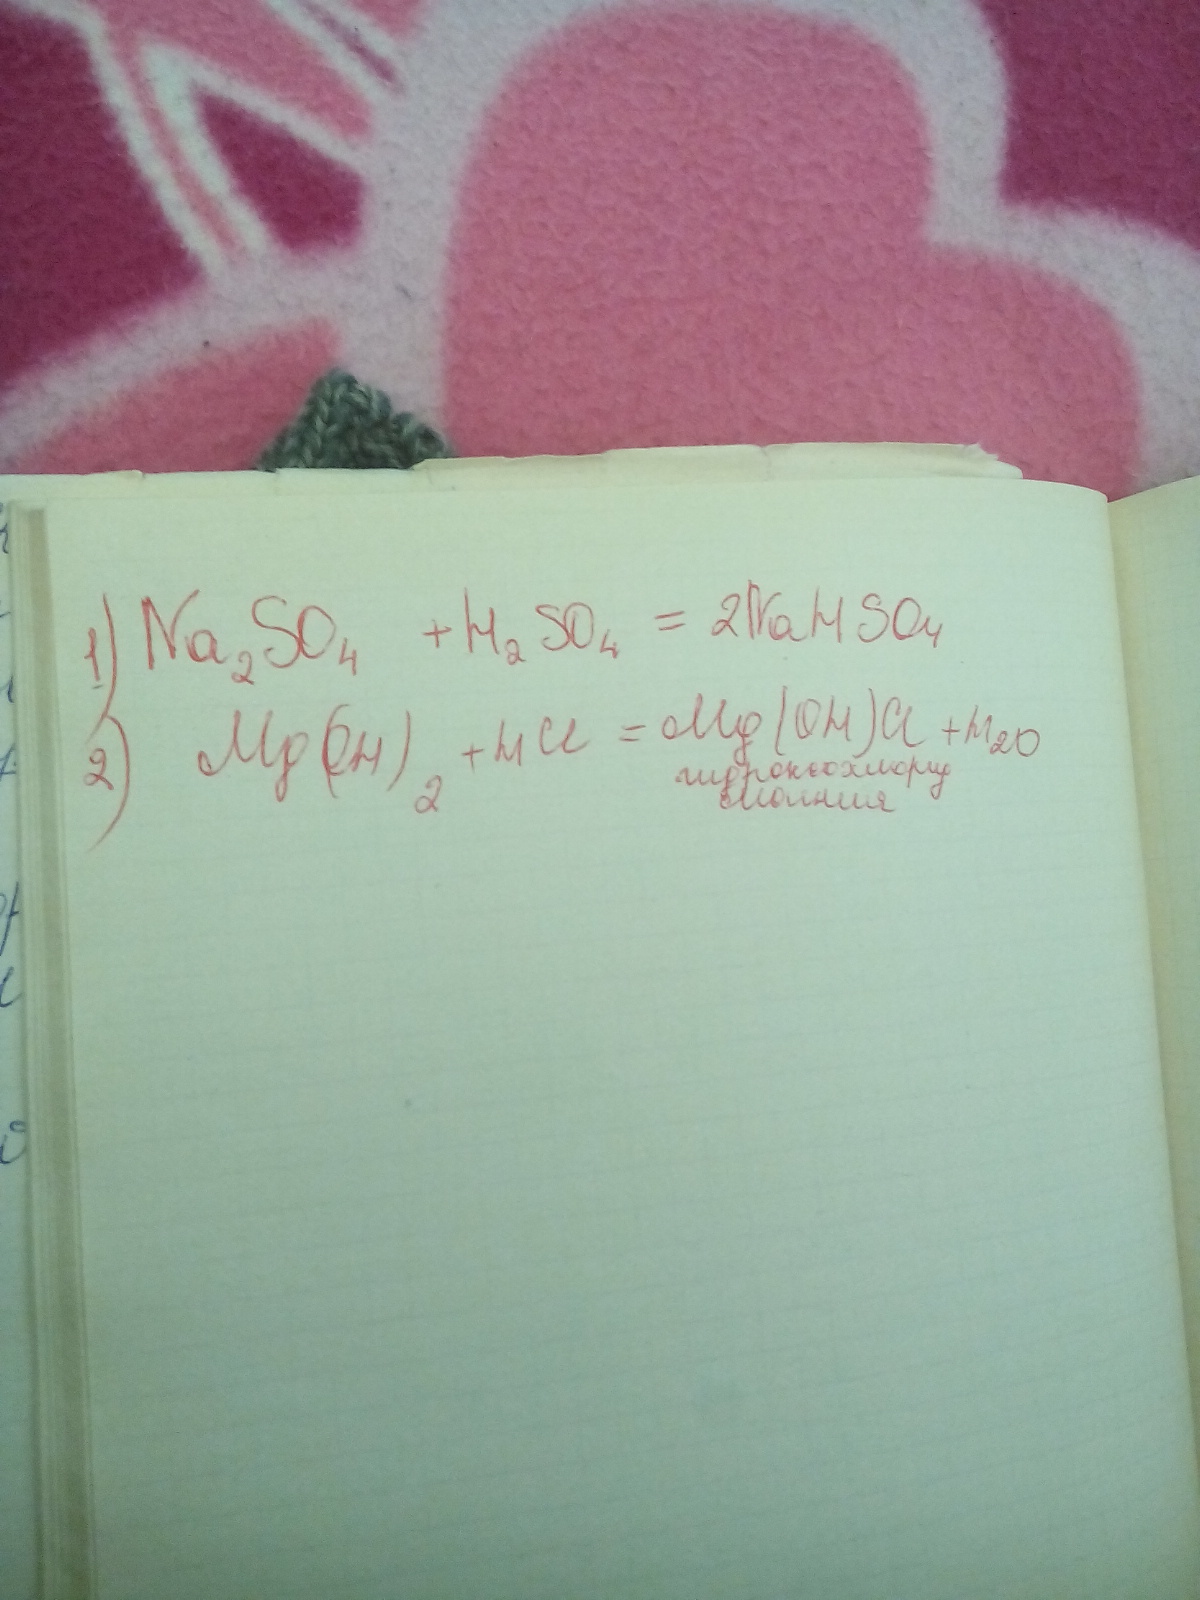 1) Na₂SO₄ + H₂SO₄ = 2NaHSO₄
2) Mg(OH)₂ + HCl = Mg(OH)Cl + H₂O
гидроксохлорид
магния